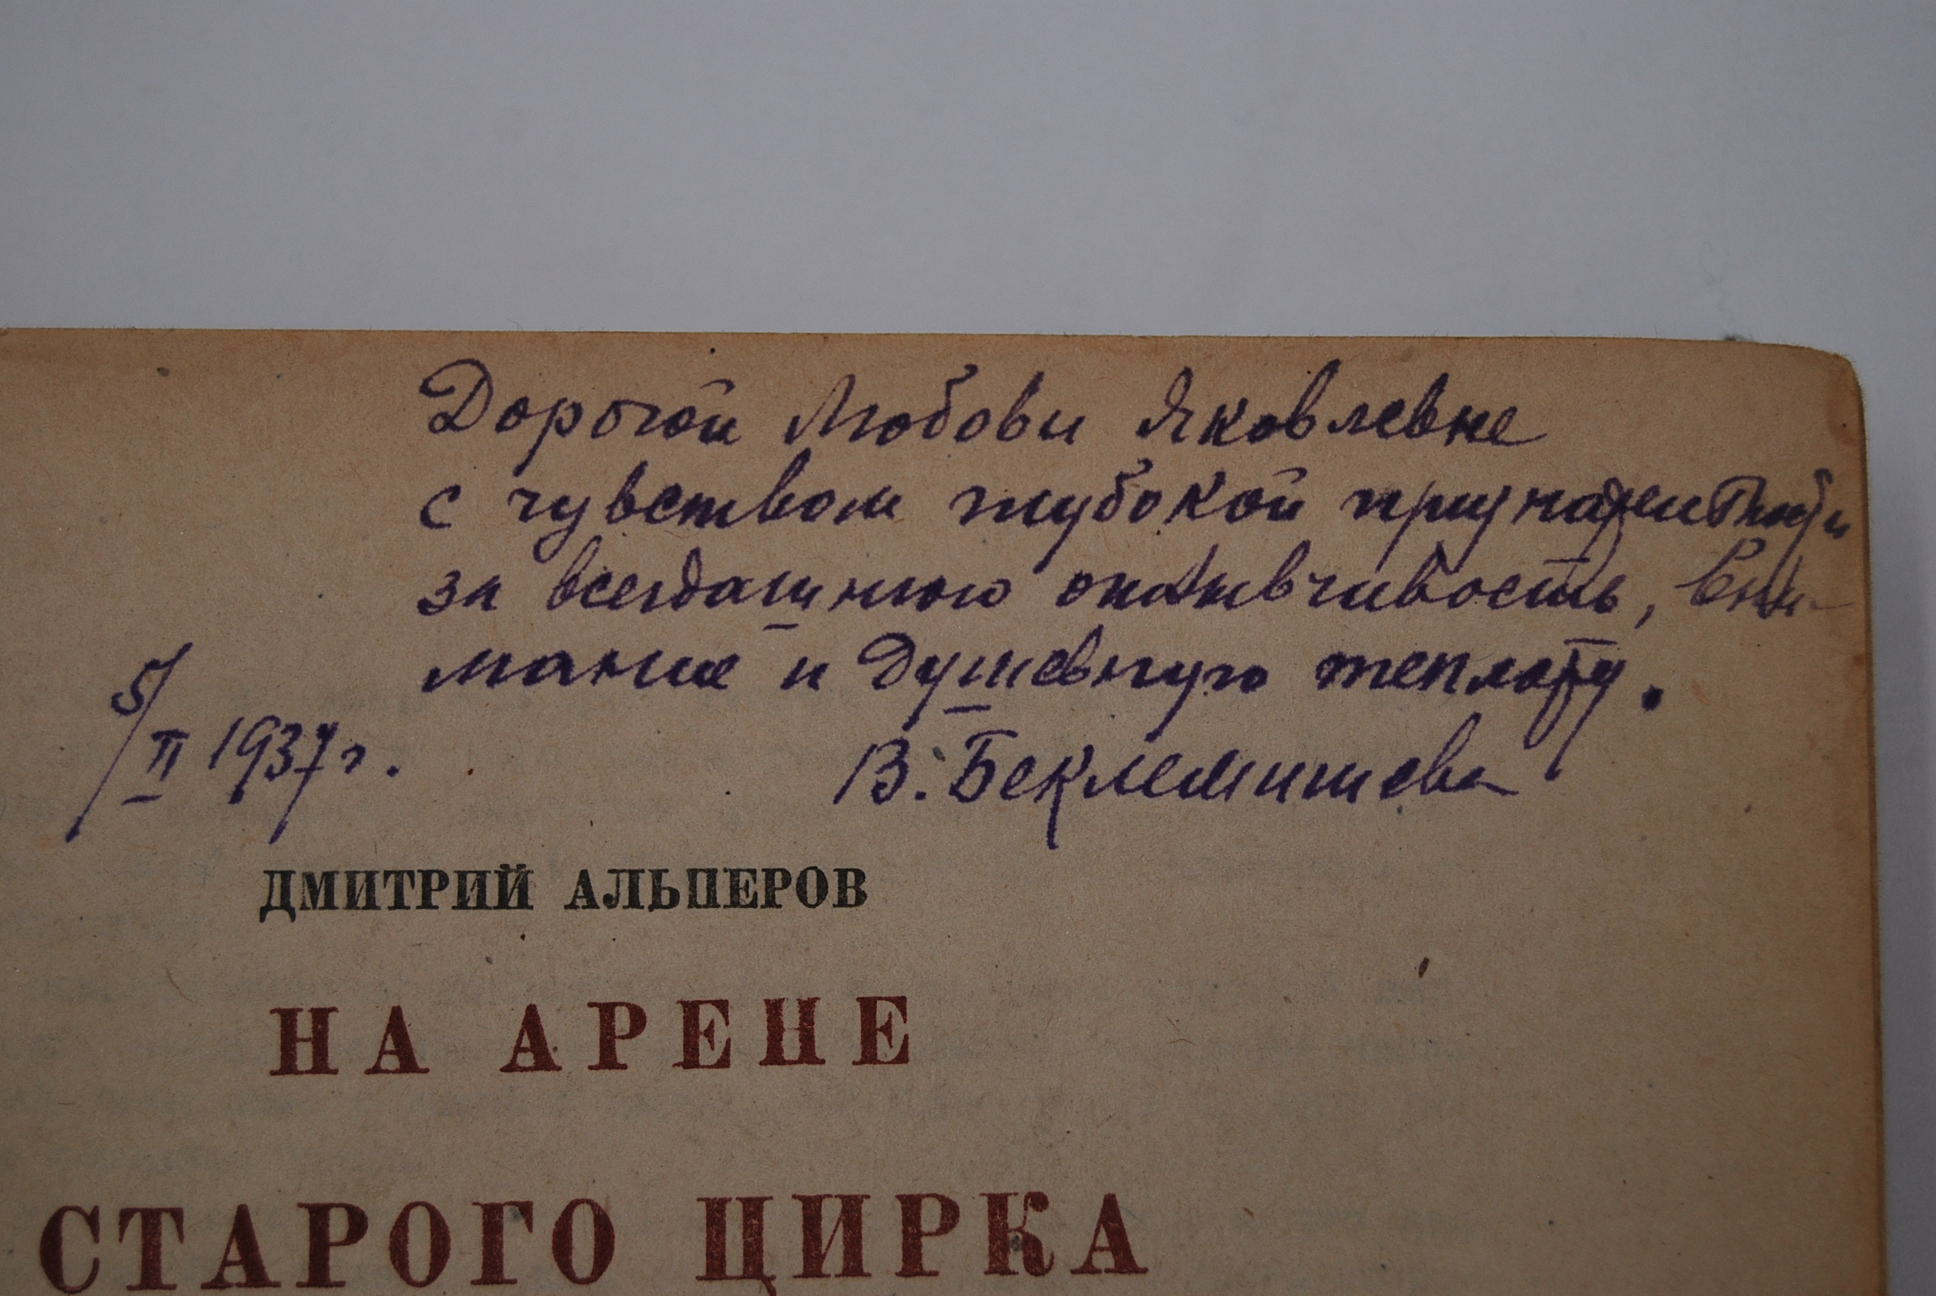 Дорогой Любови Яковлевне
с чувством глубокой признательности
за всегдашнюю отзывчивость, вни-
мание и душевную теплоту.
5/II 1937 г.
В. Беклемишева
ДМИТРИЙ АЛЬПЕРОВ
НА АРЕНЕ
СТАРОГО ЦИРКА